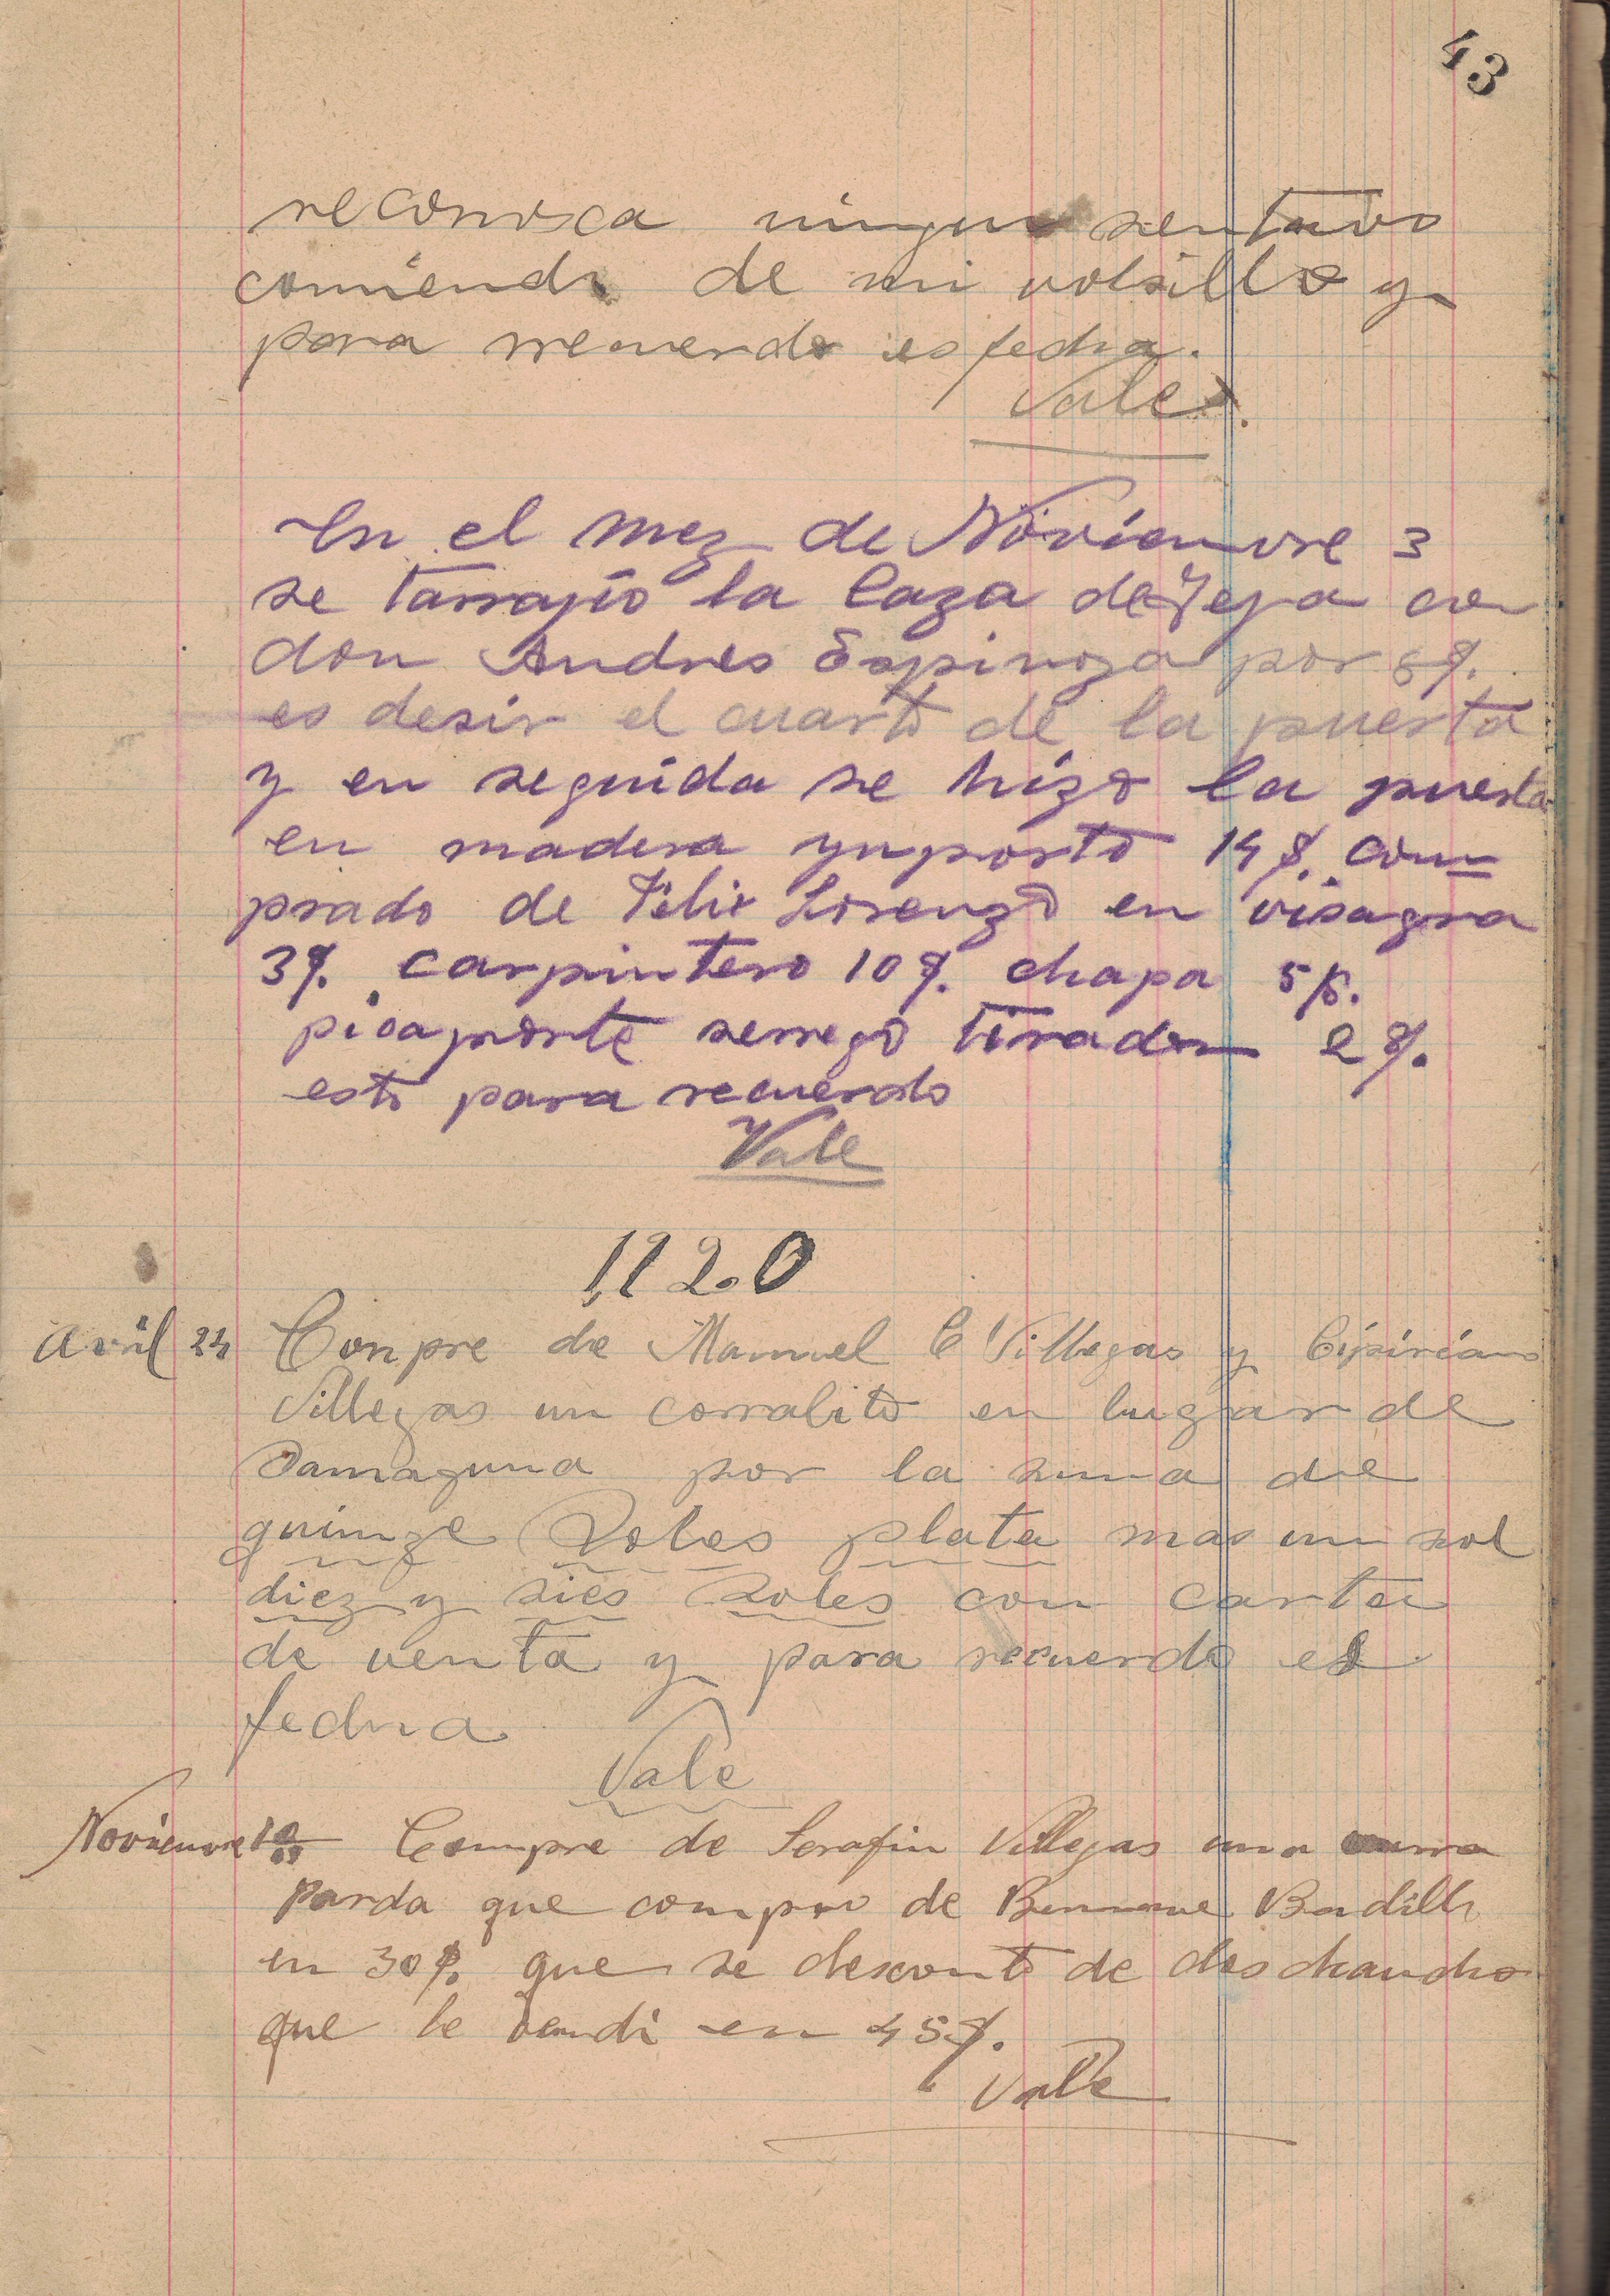 43
reconosca ningun sentavo
comiendo de mi volsillo y
para rrecuerdo es fecha.
Vale.
En el mez de Novienvre 3
se tarrajio la caza de Teja con
don Andres Espinoza por 8$.
es desir el cuarto de la puerta
y en seguida se hizo la puerta
en madera ynporto 14$. com=
prado de Felix Lorenzo en visagra
3$. carpintero 10$. chapa 5$.
picaporte serrego tirador 2$.
esto para recuerdo
Vale
1920
Avril 24 Conpre de Manuel C Villegas y Cipiriano
Villegas un corralito en lugar de
Samaguna por la suma de
quinze Soles plata mas un sol
diez y sies Soles con carta
de venta y para recuerdo es
fecha
Vale
Novienvre 10 Compre de Serafin Villegas una
Parda que compro de Badillo
en 30$. que se desconto de dos chancho
que le vendi en 45$.
Vale